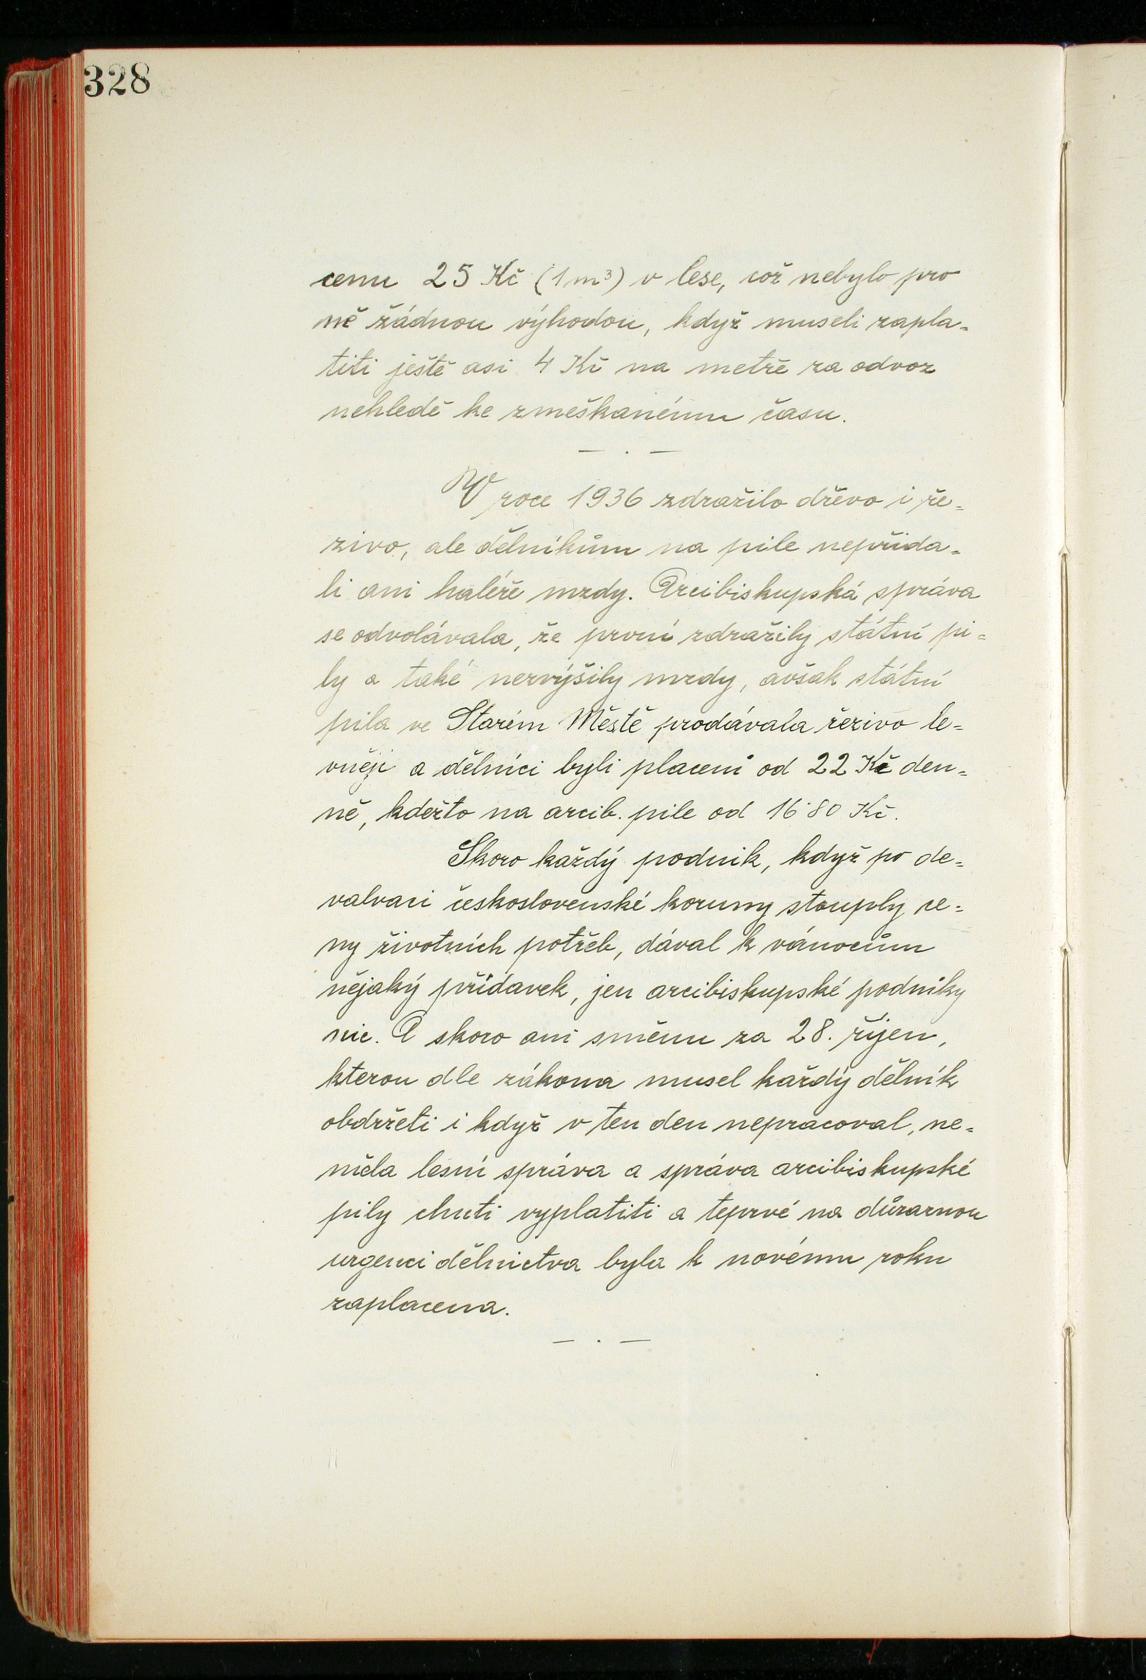 328
cenu 25 Kč (1 m³) v lese, což nebylo pro
ně žádnou výhodou, když museli zapla=
titi ještě asi 4 Kč na metře za odvoz
nehledě ke zmeškanému času.
— . —
V roce 1936 zdražilo dřevo i ře=
zivo, ale dělníkům na pile nepřida=
li ani haléře mzdy. Arcibiskupská správa
se odvolávala, že první zdražily státní pi=
ly a také nezvýšily mzdy, avšak státní
pila ve Starém Městě prodávala řezivo le=
vněji a dělníci byli placeni od 22 Kč den=
ně, kdežto na arcib. pile od 16˙80 Kč.
Skoro každý podnik, když po de=
valvaci československé koruny stouply ce=
ny životních potřeb, dával k vánocům
nějaký přídavek, jen arcibiskupské podniky
nic. A skoro ani směnu za 28. říjen,
kterou dle zákona musel každý dělník
obdržeti i když v ten den nepracoval, ne=
měla lesní správa a správa arcibiskupské
pily chuti vyplatiti a teprvé na důraznou
urgenci dělnictva byla k novému roku
zaplacena.
— . —